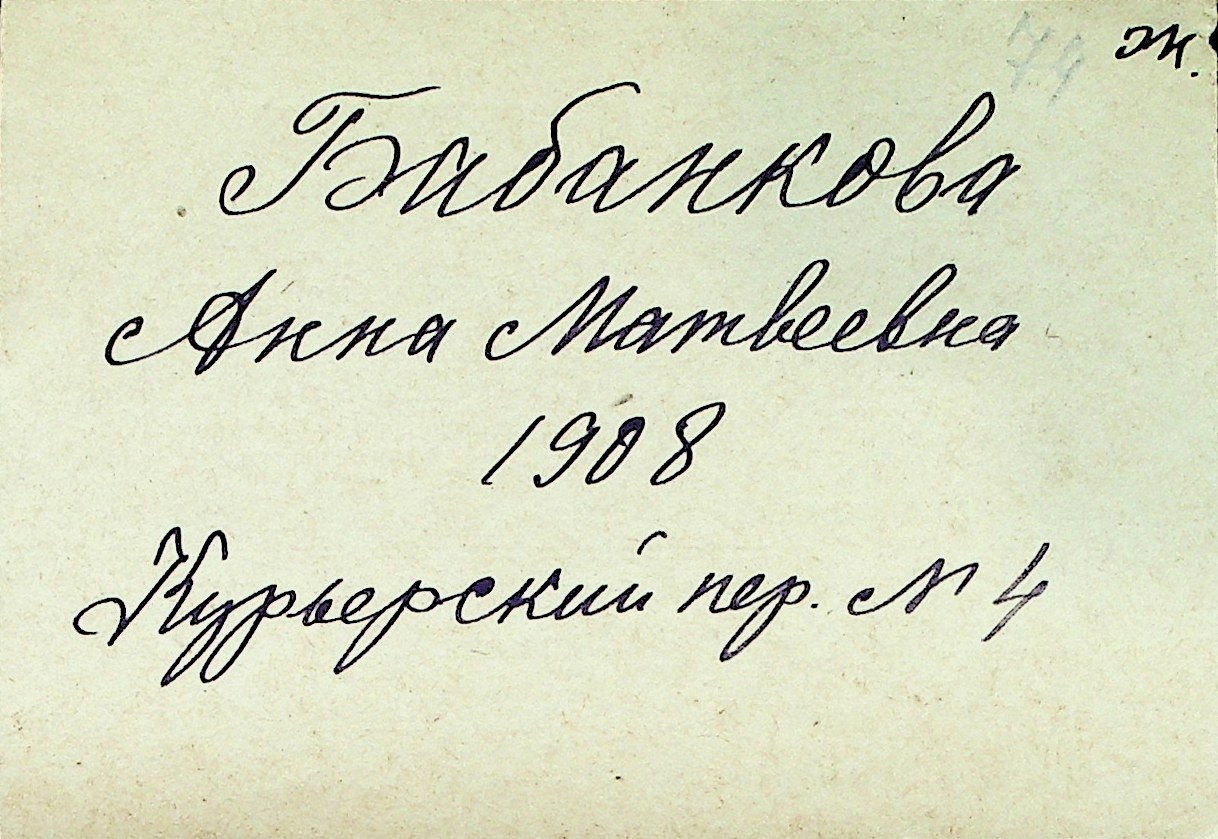 74 ж.
Бабанкова
Анна Матвеевна
1908
Курьерский пер. № 4